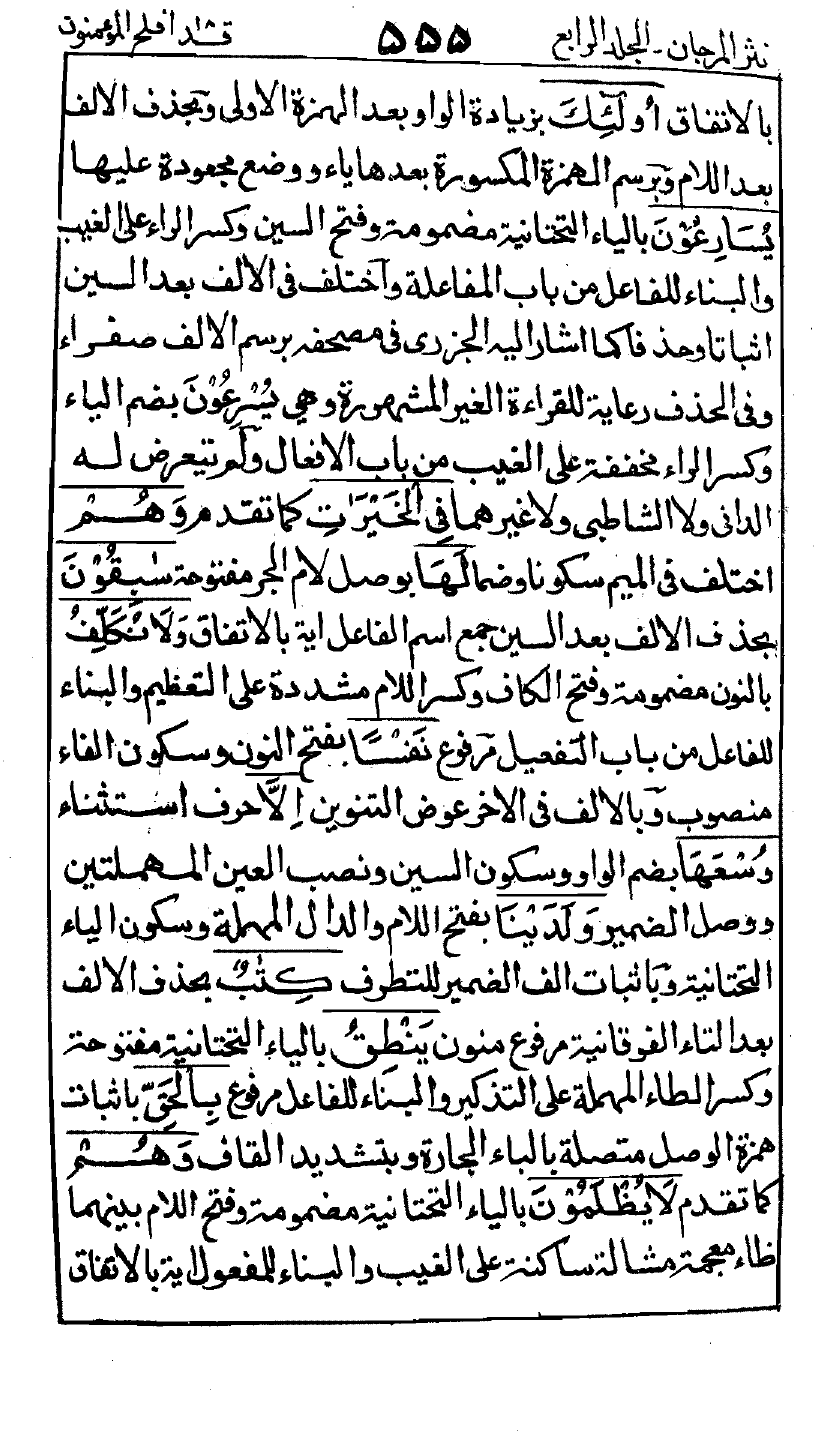 نثر المرجان - الجلد الرابع ۵۵۵ قد افلح المؤمنون
بالاتفاق اُولٰٓئِكَ بزيادة الواو بعد الهمزة الاولى وبحذف الالف
بعد اللام وبرسم الهمزة المكسورة بعدها ياء ووضع مجعودة عليها
يُسَارِعُوْنَ بالياء التحتانية مضمومة وفتح السين وكسر الراء على الغيب
والبناء للفاعل من باب المفاعلة واختلف فى الالف بعد السين
اثباتا وحذفا كما اشار اليه الجزرى فى مصحفه برسم الالف صفراء
وفى الحذف رعاية للقراءة الغير المشهورة وهي يُسْرِعُوْنَ بضم الياء
وكسر الراء مخففة على الغيب من باب الافعال ولم يتعرض له
الدانى ولا الشاطبى ولا غيرهما فِي الْخَيْرَاتِ كما تقدم وَهُمْ
اختلف فى الميم سكونا وضما لَهَا بوصل لام الجر مفتوحة سٰبِقُوْنَ
بحذف الالف بعد السين جمع اسم الفاعل اية بالاتفاق وَلَا نُكَلِّفُ
بالنون مضمومة وفتح الكاف وكسر اللام مشددة على التعظيم والبناء
للفاعل من باب التفعيل مرفوع نَفْسًا بفتح النون وسكون الفاء
منصوب وبالالف فى الاخر عوض التنوين اِلَّا حرف استثناء
وُسْعَهَا بضم الواو وسكون السين ونصب العين المهملتين
ووصل الضمير وَلَدَيْنَا بفتح اللام والدال المهملة وسكون الياء
التحتانية وباثبات الف الضمير للتطرف كِتٰبٌ بحذف الالف
بعد التاء الفوقانية مرفوع منون يَنْطِقُ بالياء التحتانية مفتوحة
وكسر الطاء المهملة على التذكير والبناء للفاعل مرفوع بِالْحَقِّ باثبات
همزة الوصل متصلة بالباء الجارة وبتشديد القاف وَهُمْ
كما تقدم لَا يُظْلَمُوْنَ بالياء التحتانية مضمومة وفتح اللام بينهما
ظاء معجمة مشالة ساكنة على الغيب والبناء للمفعول اية بالاتفاق